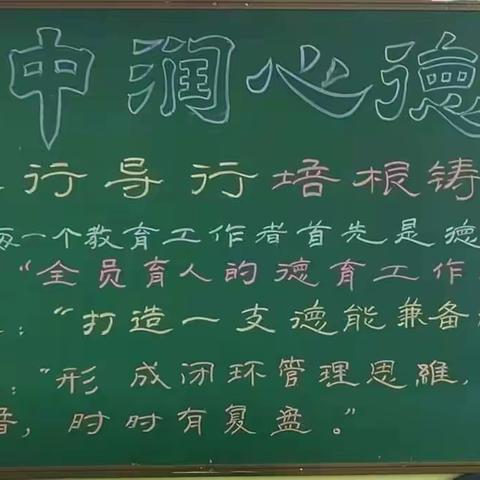 中润心德
行导行培根铸
每一个教育工作者首先是德
“全员育人的德育工作
：“打造一支德能兼备
：“形成闭环管理思維，
，时时有复盘。”